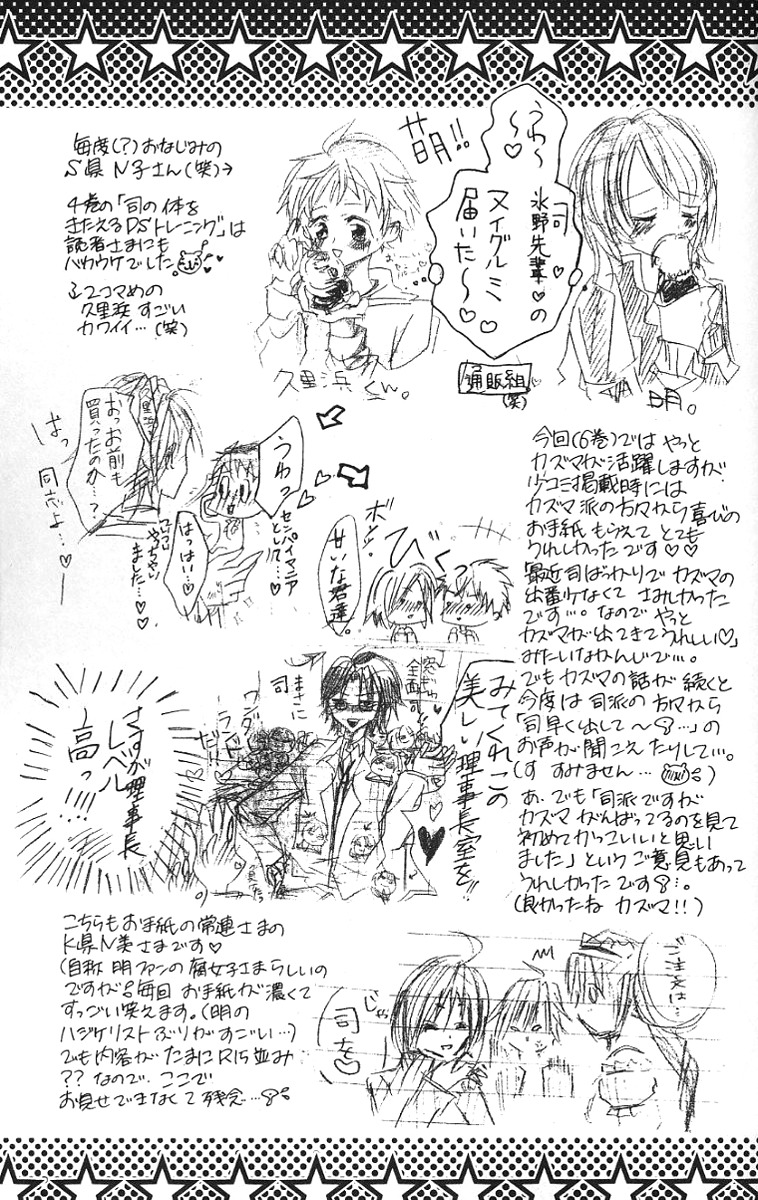 毎度(?)おなじみの
S県 N子さん(笑)→
4巻の「司の体を
きたえるDSトレーニング」は
読者さまにも
バカウケでした。
↓2コマめの
久里浜 すごい
カワイイ…(笑)
明!!
うわ〜
〜♡
司♡
氷野先輩の
ヌイグルミ
届いた〜♡♡
久里浜くん。
通販組
(笑)
明。
おっお前も
買ったのか…?
ばっ
同志よ…♡
うわっ
はっはい…♡
センパイマニア
として…♡
ココロ
やっちゃい
ました…♡
甘いな君達。
びくっ
今回(6巻)では やっと
カズマが活躍しますが
少コミ掲載時には
カズマ派の方々から喜びの
お手紙もらえて とても
うれしかったです♡♡
最近司ばっかりで カズマの
出番少なくて さみしかった
です…。なので やっと
カズマが出てきてうれしい♡」
みたいなかんじで…。
でも カズマの話が 続くと
今度は 司派の 方々から
「司早く出して〜…」の
お声が聞こえたりして…。
(す すみません…)
あ、でも「司派ですが
カズマ がんばってるのを見て
初めてかっこいいと思い
ました」という ご意見もあって
うれしかったです…。
(良かったね カズマ!!)
みてくれこの
美しい理事長室を!!
まさに
司
ワンダー
ランド
だ!!
さすが理事長
レベル
高っ!!!
こちらもお手紙の常連さまの
K県N美さまです♡
(自称 明ファンの腐女子さまらしいの
ですが 毎回 お手紙が濃くて
すっごい笑えます。(明の
ハジケリストぶりがすごい…)
でも内容が たまにR15並み
??なので、ここで
お見せできなくて残念…
ご注文は…
じゃ
司を♡